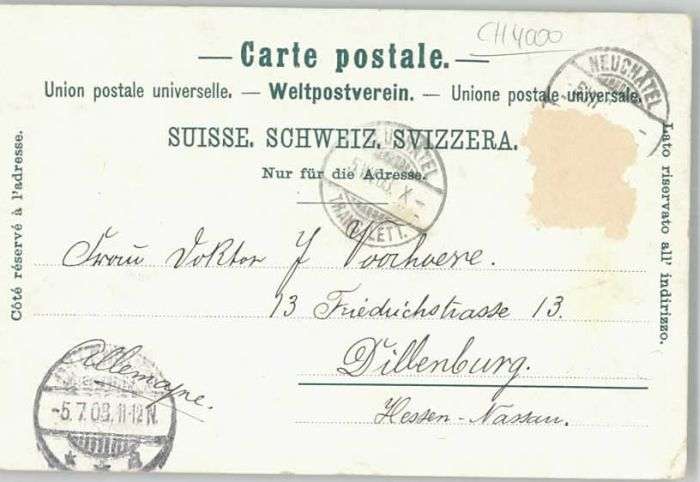 CH4000
— Carte postale. —
Union postale universelle. — Weltpostverein. — Unione postale universale.
SUISSE. SCHWEIZ. SVIZZERA.
Nur für die Adresse.
NEUCHÂTEL
NEUCHÂTEL
TRANS. LETT.
Côté réservé à l'adresse.
Lato riservato all' indirizzo.
Frau Doktor J Voorhoeve.
13 Friedrichstrasse 13.
Dillenburg.
Hessen-Nassau.
Allemagne.
-5.7.03.11-12 N.